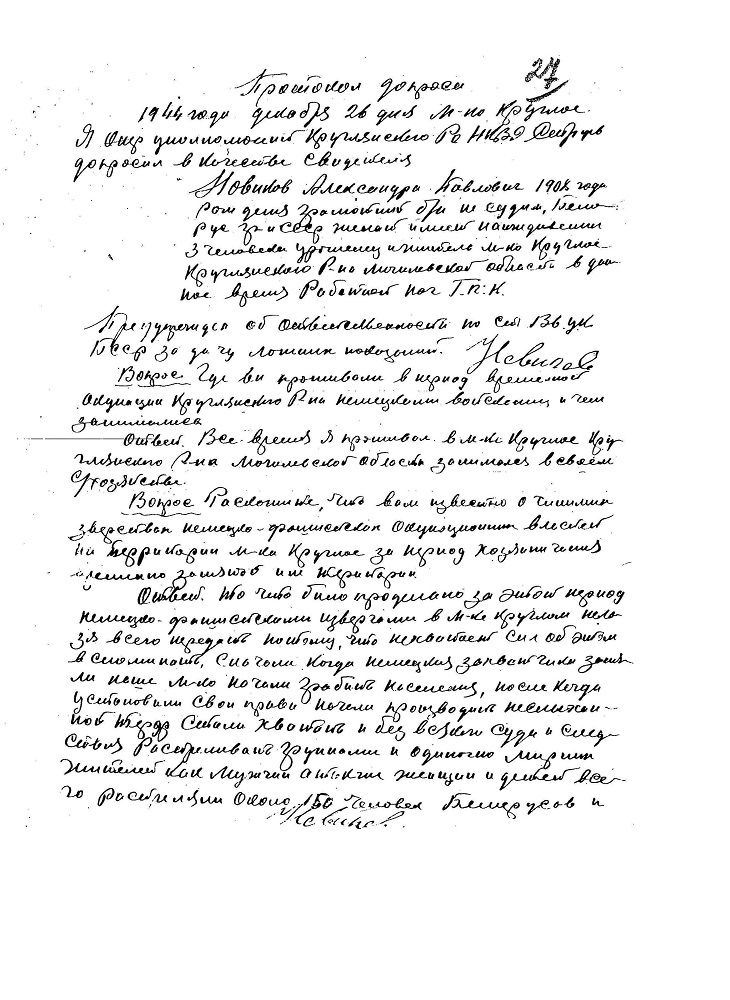 27
Протокол допроса
1944 года декабря 26 дня м-ко Круглое
Я Опер уполномочен Круглянского Ро НКВД
допросил в качестве свидетеля
Новиков Александра Павлович 1908 года
рождения грамотный б/п не судим, Бело-
рус гр-н СССР женат имеет на иждивении
3 человека уроженец и житель м-ко Круглое
Круглянского Р-на Могилевской области в дан-
ное время работает
Предупрежден об ответственности по ст 136 УК
БССР за дачу ложных показаний. Новиков
Вопрос Где вы проживали в период временной
окупации Круглянского Р-на немецкими войсками и чем
занимались
Ответ. Все время я проживал в м-ке Круглое Кру-
глянского Р-на Могилевской области занимался в своем
с/хозяйстве.
Вопрос Раскажите, что вам известно о чинимых
зверствах немецко-фашистских окупационных властей
на территории м-ка Круглое за период хозяйничания
временно занятой ими территории
Ответ. То что было проделано за этот период
немецко-фашистскими извергами в м-ке Круглом нель-
зя всего передать потому, что нехватает сил об этом
вспоминать, сначала когда немецкия захватчики заня-
ли наше м-ко начали грабить население, после когда
установили свои права начали производить неслыхан-
ной терор стали хватать и без всякого суда и след-
ствия растреливать групами и одиночно мирных
жителей как мужчин а также женщин и детей все-
го растреляли около 150 человек белорусов и
Новиков.